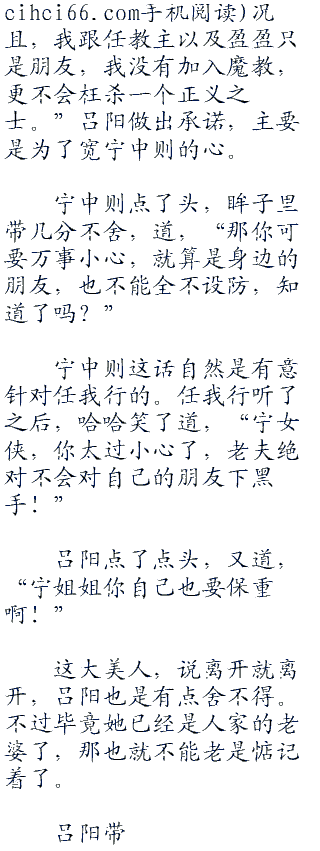 cihci66.com手机阅读)况
且，我跟任教主以及盈盈只
是朋友，我没有加入魔教，
更不会枉杀一个正义之
士。”吕阳做出承诺，主要
是为了宽宁中则的心。
宁中则点了头，眸子里
带几分不舍，道，“那你可
要万事小心，就算是身边的
朋友，也不能全不设防，知
道了吗？”
宁中则这话自然是有意
针对任我行的。任我行听了
之后，哈哈笑了道，“宁女
侠，你太过小心了，老夫绝
对不会对自己的朋友下黑
手！”
吕阳点了点头，又道，
“宁姐姐你自己也要保重
啊！”
这大美人，说离开就离
开，吕阳也是有点舍不得。
不过毕竟她已经是人家的老
婆了，那也就不能老是惦记
着了。
吕阳带